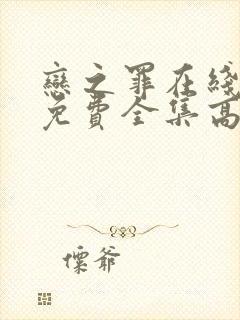 戀之罪在綫
免費全集高
慄爺